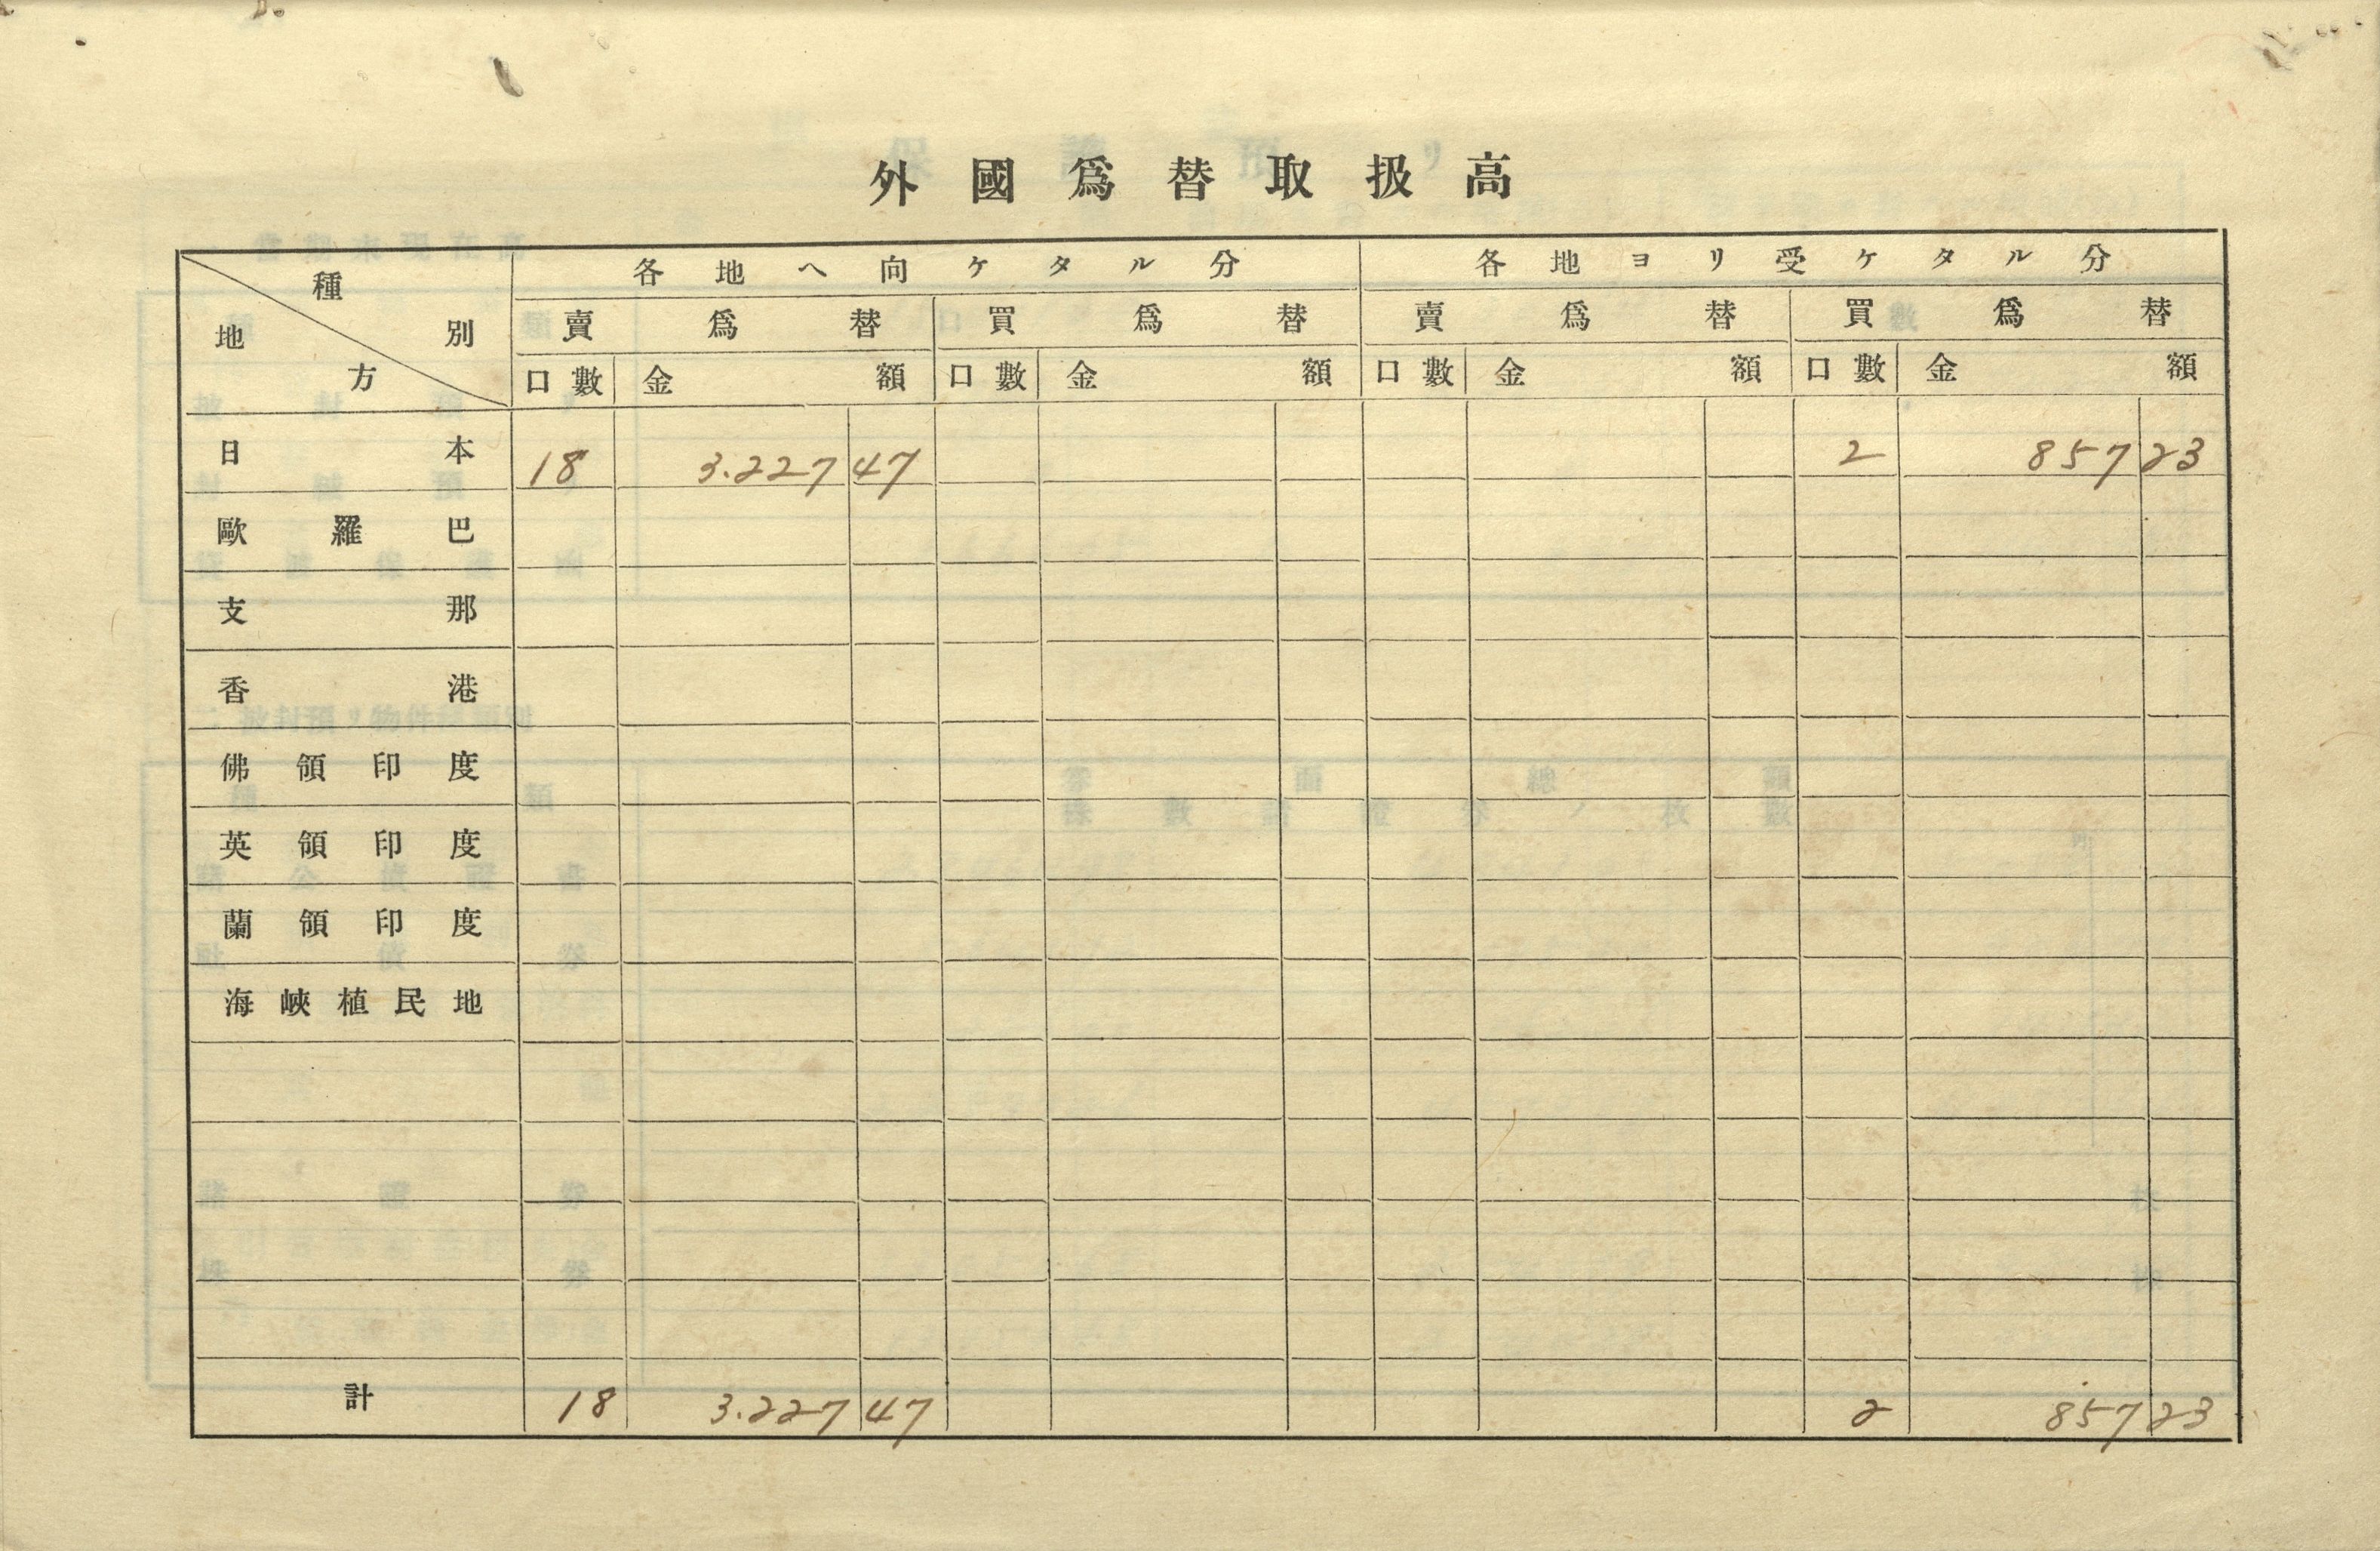 外國爲替取扱高
種別 地方 各地ヘ向ケタル分 各地ヨリ受ケタル分
賣爲替 買爲替 賣爲替 買爲替
口數 金額 口數 金額 口數 金額 口數 金額
日本 18 3.227 47 2 857 23
歐羅巴
支那
香港
佛領印度
英領印度
蘭領印度
海峽植民地
計 18 3.227 47 2 857 23